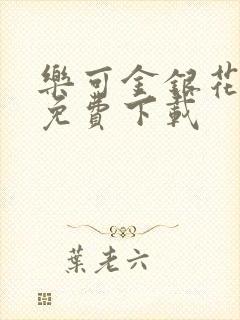 樂可金銀花
免費下載
葉老六